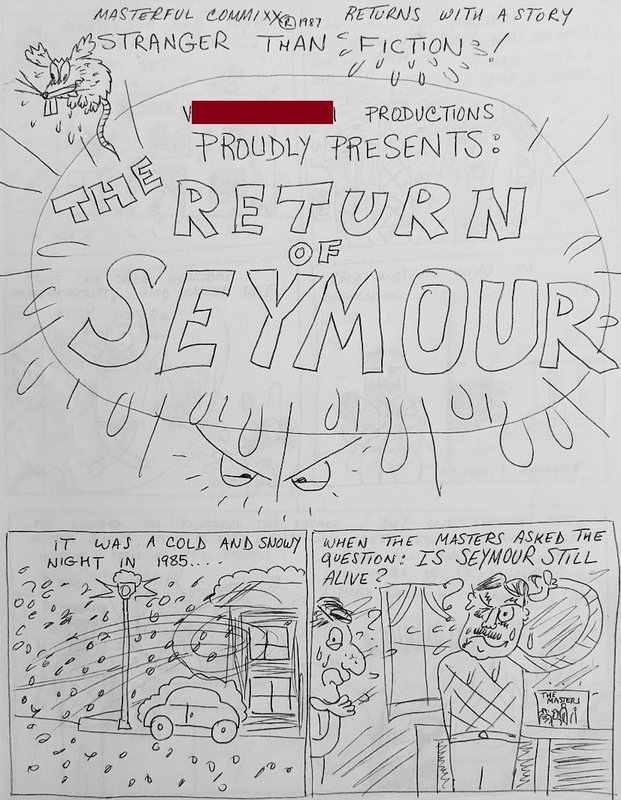 MASTERFUL COMMIXX ® 1987 RETURNS WITH A STORY
STRANGER THAN FICTION!
PRODUCTIONS
PROUDLY PRESENTS:
THE
RETURN
OF
SEYMOUR
IT WAS A COLD AND SNOWY
NIGHT IN 1985....
WHEN THE MASTERS ASKED THE
QUESTION: IS SEYMOUR STILL
ALIVE?
?
?
THE
MASTERS